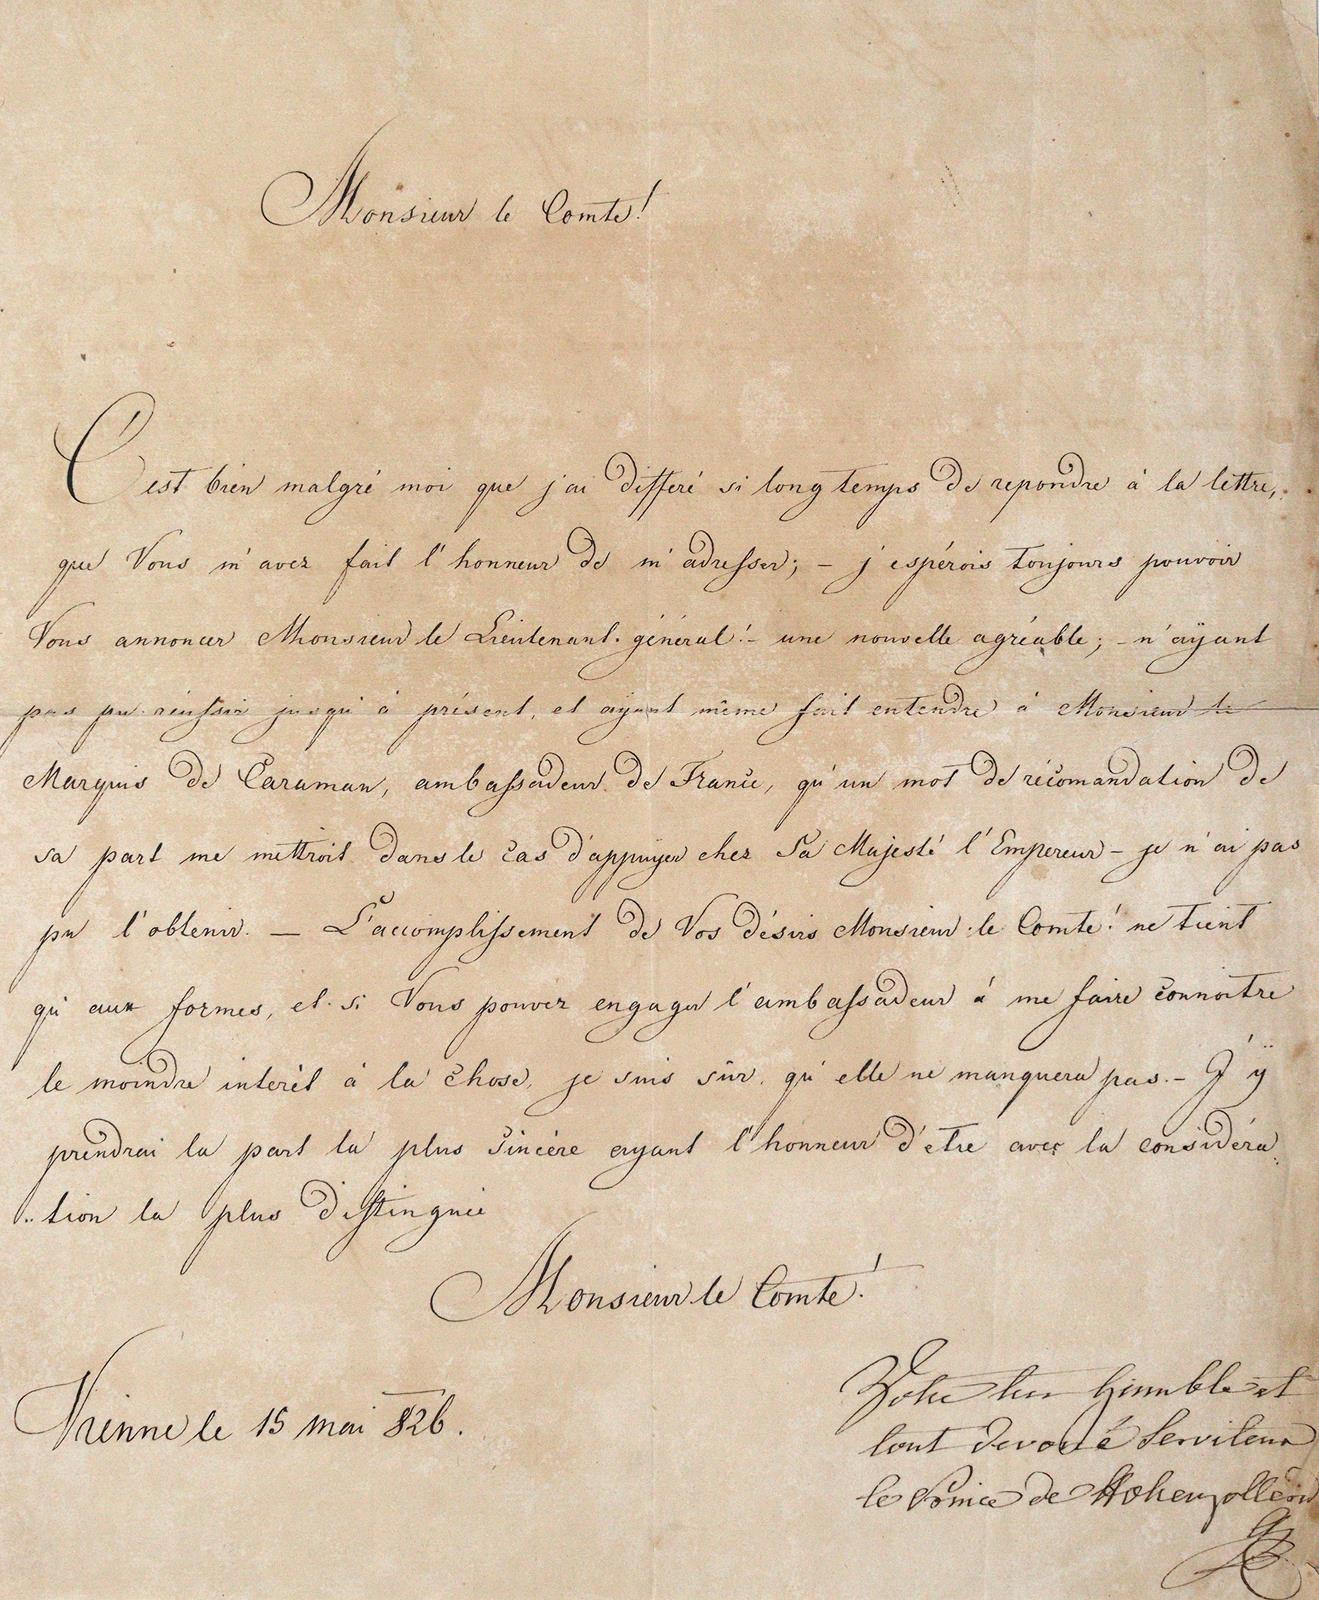 Monsieur le Comte!
C'est bien malgré moi que j'ai differé si long temps de repondre à la lettre,
que Vous m'avez fait l'honneur de m'adresser; – j'espérois toujours pouvoir
Vous annoncer Monsieur le Lieutenant-général! – une nouvelle agréable; – n'aÿant
pas pu réussir jusqu'à présent, et ayant même fait entendre à Monsieur le
Marquis de Caraman, ambassadeur de France, qu'un mot de récomandation de
sa part me mettroit dans le cas d'appuyer chez Sa Majesté l'Empereur – je n'ai pas
pu l'obtenir. – L'accomplissement de Vos désirs Monsieur le Comte! ne tient
qu'aux formes, et si Vous pouvez engager l'ambassadeur à me faire connoitre
le moindre interêt à la chose, je suis sûr, qu'elle ne manquera pas. – J'ÿ
prendrai la part la plus sincère ayant l'honneur d'etre avec la considéra
..tion la plus distinguée
Monsieur le Comte!
Vienne le 15 mai 826.
Votre tres humble et
tout devoué Serviteur
le Prince de Hohenzollern